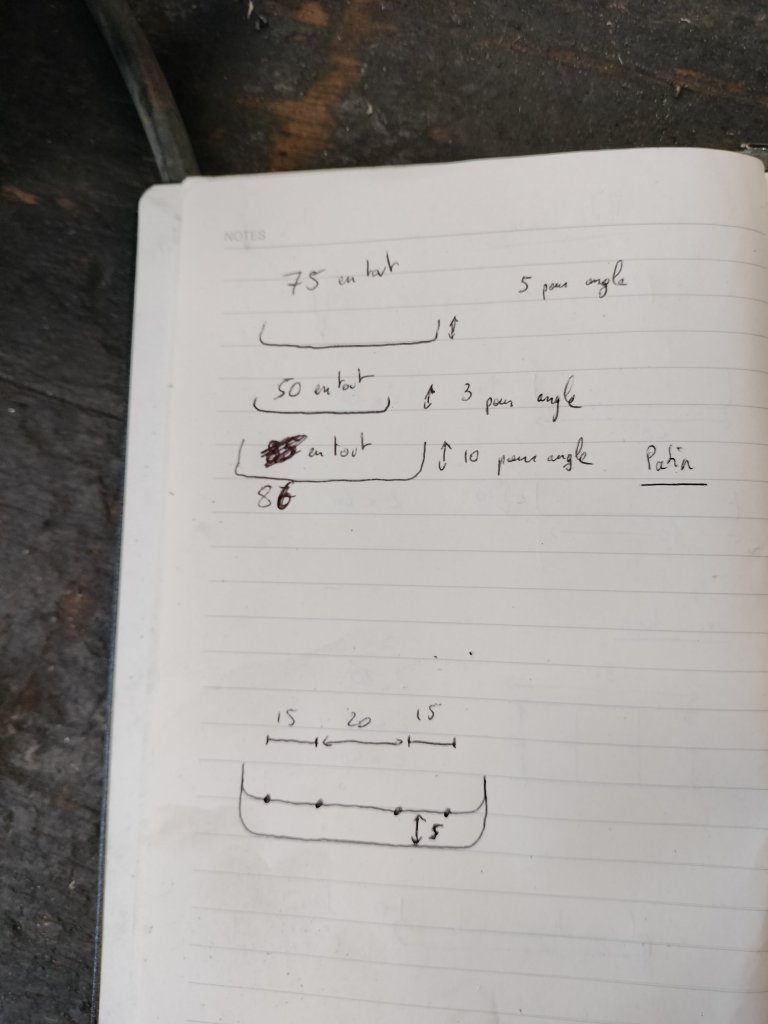 NOTES
75 en tout 5 pour angle
50 en tout 3 pour angle
en tout 10 pour angle Patin
86
15 20 15
5